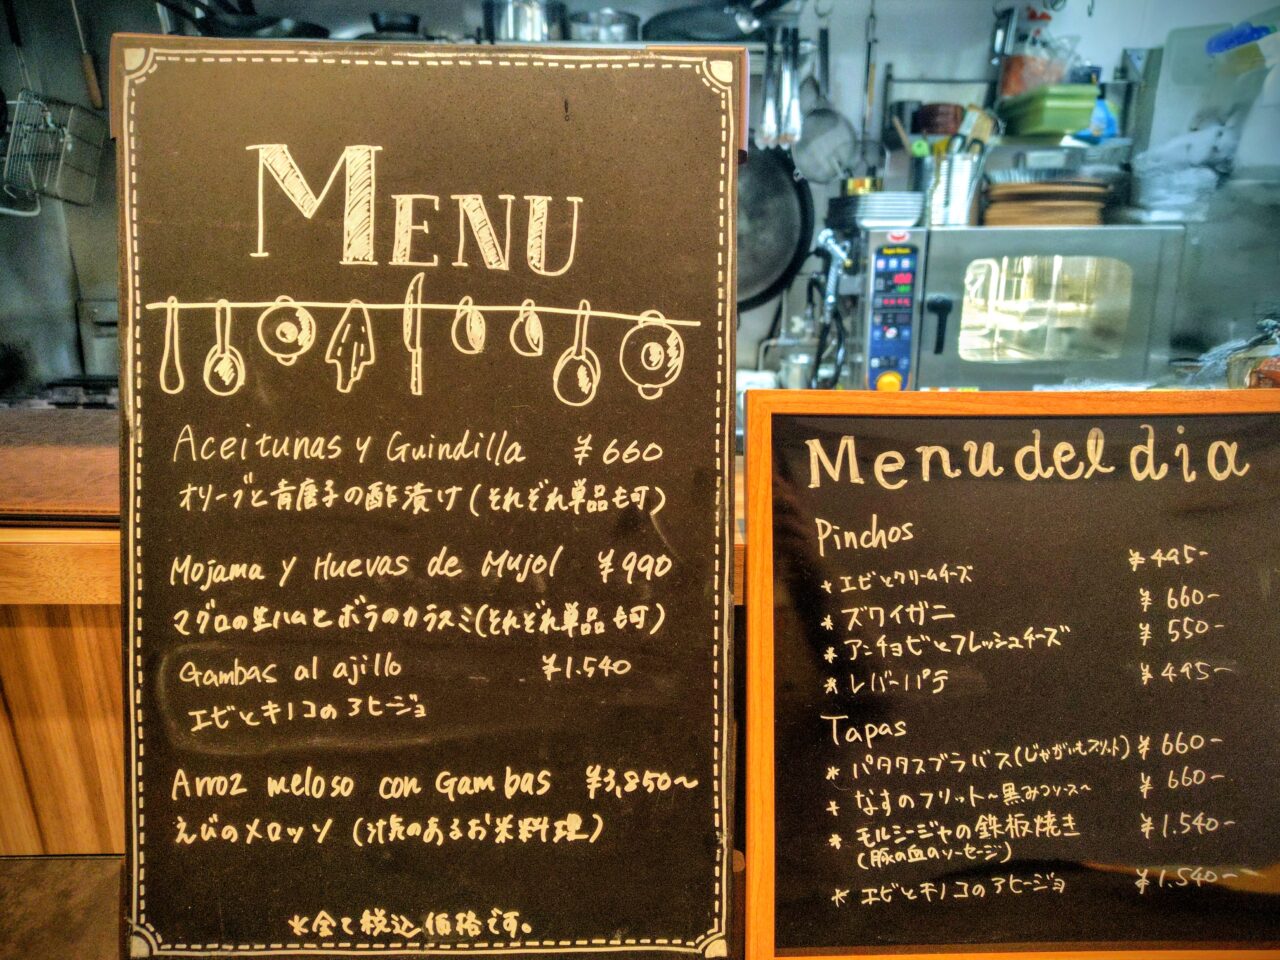 MENU
Aceitunas y Guindilla ¥660
オリーブと青唐子の酢漬け(それぞれ単品も可)
Mojama y Huevas de Mujol ¥990
マグロの生ハムとボラのカラスミ(それぞれ単品も可)
Gambas al ajillo ¥1.540
エビとキノコのアヒージョ
Arroz meloso con Gambas ¥3,850〜
えびのメロッソ (汁気のあるお米料理)
*全て税込価格です。
Menu del dia
Pinchos
* エビとクリームチーズ ¥495-
* ズワイガニ ¥660-
* アンチョビとフレッシュチーズ ¥550-
* レバーパテ ¥495-
Tapas
* パタタスブラバス(じゃがいもフリット) ¥660-
* なすのフリット〜黒みつソース〜 ¥660-
* モルシージャの鉄板焼き ¥1.540-
(豚の血のソーセージ)
* エビとキノコのアヒージョ ¥1.540-